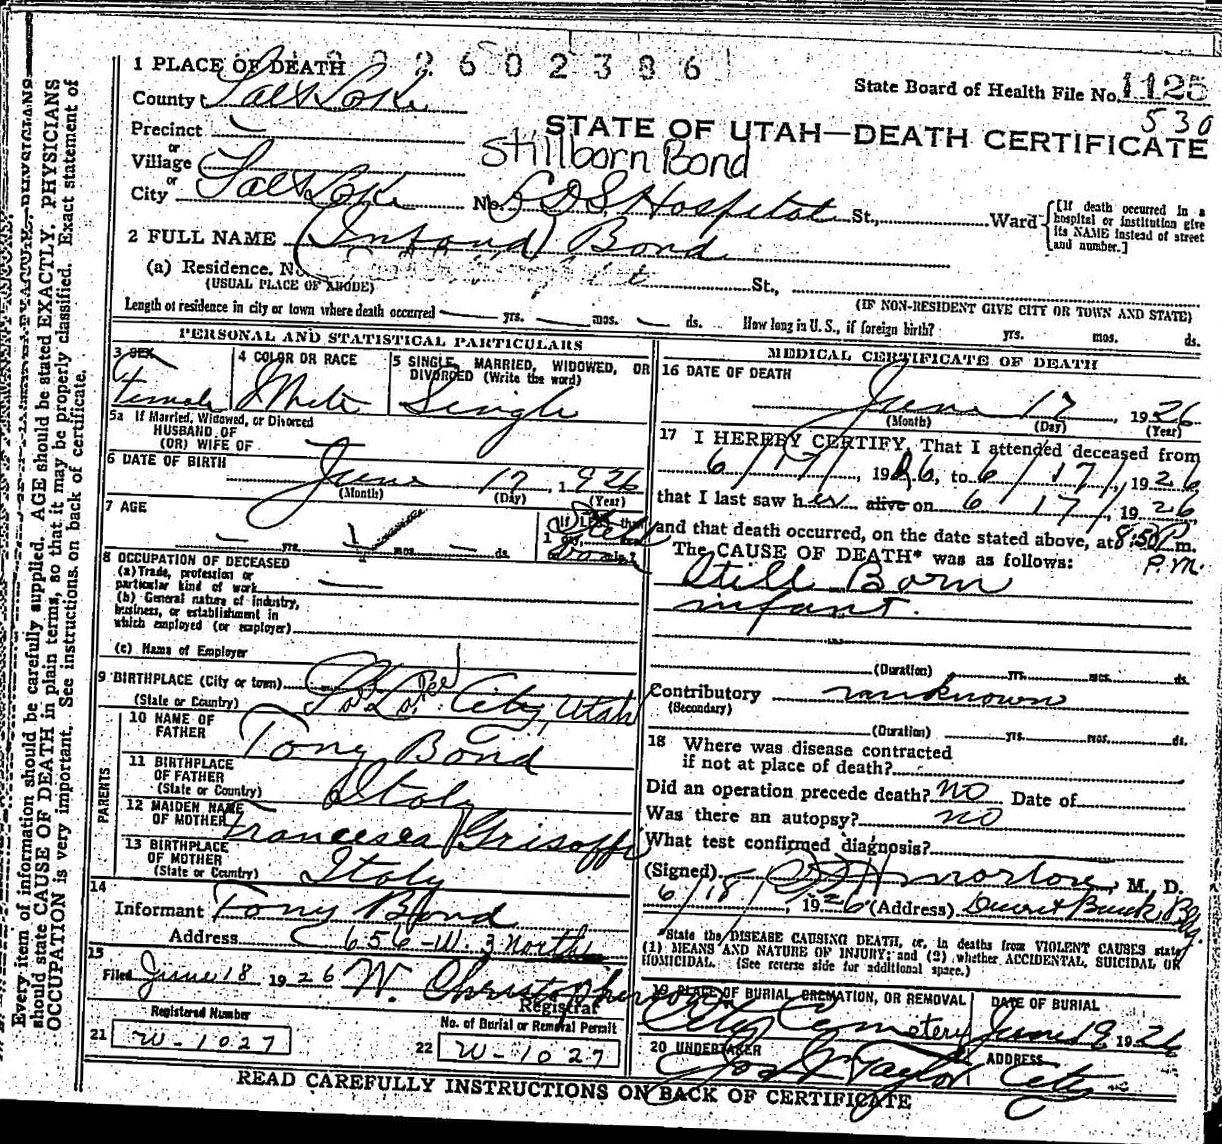 1 PLACE OF DEATH
2602386
State Board of Health File No. 1125
530
County Salt Lake
STATE OF UTAH—DEATH CERTIFICATE
Precinct
Stillborn Bond
or
Village
or
City Salt Lake No. LDS Hospital St., Ward
[If death occurred in a hospital or institution give its NAME instead of street and number.]
2 FULL NAME (Infant) Bond
(a) Residence. No. St.,
(USUAL PLACE OF ABODE)
(IF NON-RESIDENT GIVE CITY OR TOWN AND STATE)
Length of residence in city or town where death occurred — yrs. — mos. — ds. How long in U. S., if foreign birth? yrs. mos. ds.
PERSONAL AND STATISTICAL PARTICULARS
3 SEX
Female
4 COLOR OR RACE
White
5 SINGLE, MARRIED, WIDOWED, OR DIVORCED (Write the word)
Single
5a If Married, Widowed, or Divorced
HUSBAND OF
(OR) WIFE OF
6 DATE OF BIRTH
June 17, 1926
(Month) (Day) (Year)
7 AGE
— yrs. mos. — ds.
Still Born
8 OCCUPATION OF DECEASED
(a) Trade, profession or
particular kind of work —
(b) General nature of industry,
business, or establishment in
which employed (or employer)
(c) Name of Employer
9 BIRTHPLACE (City or town)
(State or Country) City, Utah
PARENTS
10 NAME OF FATHER
Tony Bond
11 BIRTHPLACE OF FATHER
(State or Country)
Italy
12 MAIDEN NAME OF MOTHER
Francesca
13 BIRTHPLACE OF MOTHER
(State or Country)
Italy
14
Informant Tony Bond
Address 656-W. 3 North
15
Filed June 18 1926 W. Christopherson
Registrar
Registered Number
21 W-1027
No. of Burial or Removal Permit
22 W-1027
MEDICAL CERTIFICATE OF DEATH
16 DATE OF DEATH
June 17, 1926
(Month) (Day) (Year)
17 I HEREBY CERTIFY, That I attended deceased from
6/17/, 1926, to 6/17/, 1926
that I last saw her alive on 6 17/, 1926
and that death occurred, on the date stated above, at 8:30 P.m.
P.M.
The CAUSE OF DEATH* was as follows:
Still Born
infant.
(Duration) yrs. mos. ds.
Contributory unknown
(Secondary)
(Duration) yrs. mos. ds.
18 Where was disease contracted
if not at place of death?
Did an operation precede death? no Date of
Was there an autopsy? no
What test confirmed diagnosis?
(Signed) M., D.
6/18/, 1926 (Address) Deseret Bank Blg.
*State the DISEASE CAUSING DEATH, or, in deaths from VIOLENT CAUSES state
(1) MEANS AND NATURE OF INJURY; and (2) whether ACCIDENTAL, SUICIDAL OR
HOMICIDAL. (See reverse side for additional space.)
19 PLACE OF BURIAL, CREMATION, OR REMOVAL
City Cemetery
DATE OF BURIAL
June 19 1926
20 UNDERTAKER
Taylor
ADDRESS
City
READ CAREFULLY INSTRUCTIONS ON BACK OF CERTIFICATE
Every item of information should be carefully supplied. AGE should be stated EXACTLY. PHYSICIANS
should state CAUSE OF DEATH in plain terms, so that it may be properly classified. Exact statement of
OCCUPATION is very important. See instructions on back of certificate.